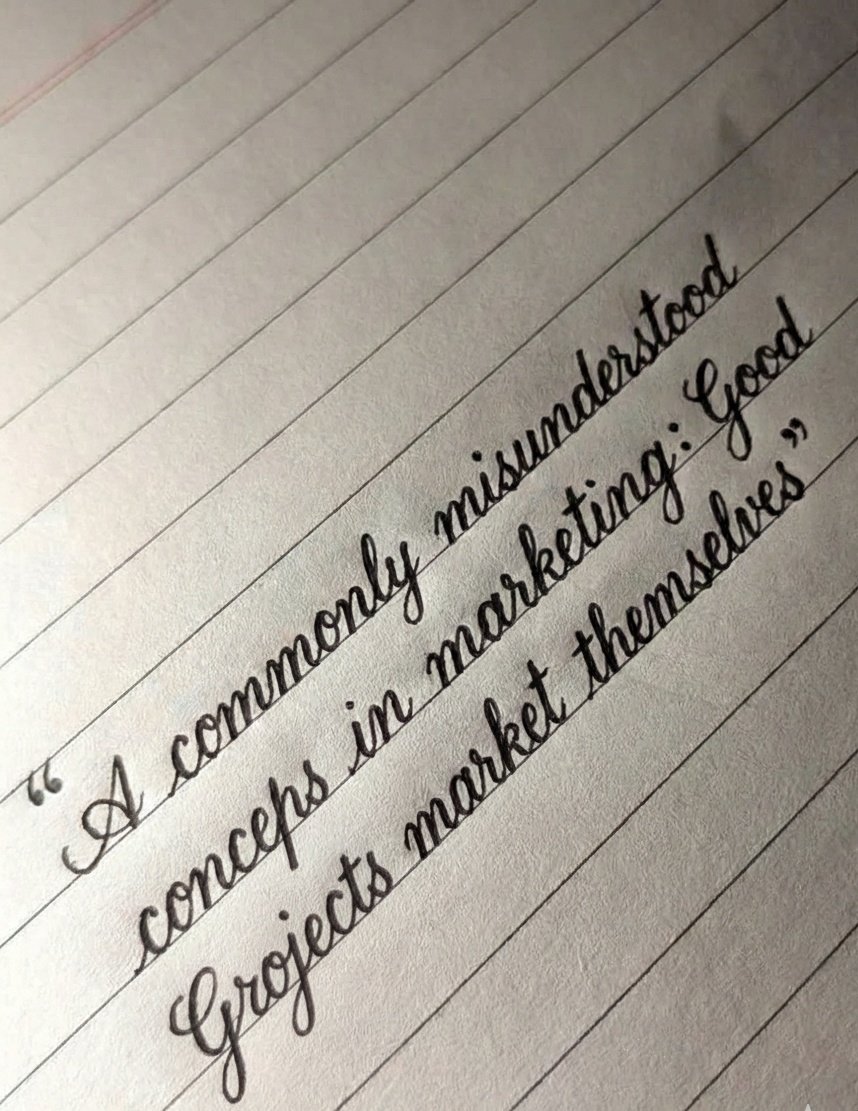 “A commonly misunderstood
conceps in marketing: Good
Grojects market themselves”